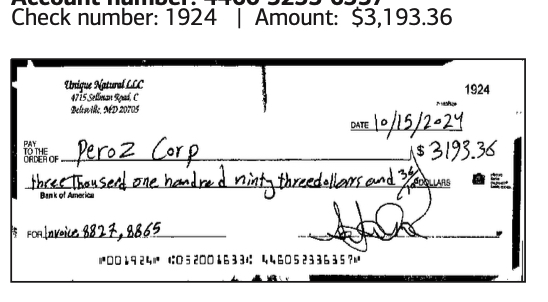 Check number: 1924 | Amount: $3,193.36
Unique Natural LLC
4715 Sellman Road, C
Beltsville, MD 20705
1924
DATE 10/15/2024
PAY TO THE ORDER OF Peroz Corp $ 3193.36
three thousend one hundred ninty three dollars and 36/ DOLLARS
Bank of America
FOR Invoice 8827, 8865
⑈001924⑈ ⑆052001633⑆ 446052336357⑈